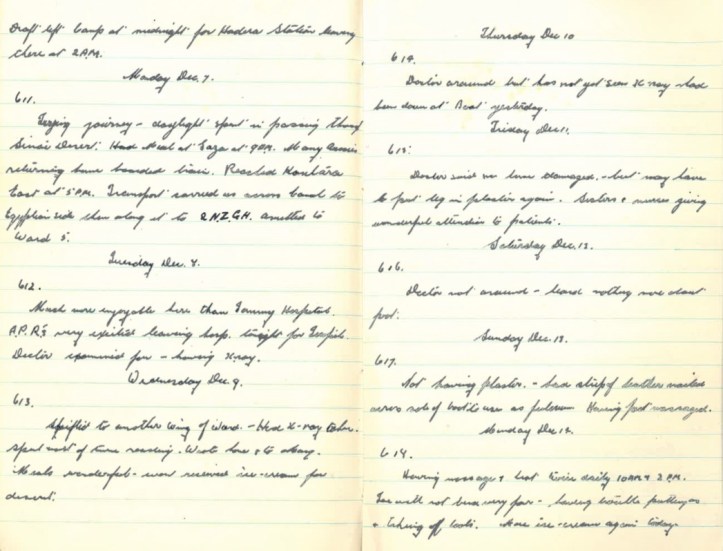 Draft left Camp at midnight for Hadera Station leaving
there at 2 A.M.
Monday Dec. 7.
611.
journey - daylight spent in passing through
Sinai Desert. Had Meal at Gaza at 9 P.M. Many
returning home boarded train. Reached Kantara
East at 5 P.M. Transport carried us across Canal to
Egyptian side then along it to 2 N.Z.G.H. admitted to
Ward 5.
Tuesday Dec. 8.
612.
Much more enjoyable here than Tommy Hospital.
very excited leaving hosp. tonight for
Doctor examined foot - having X-ray.
Wednesday Dec 9.
613.
Shifted to another wing of ward. - Had X-ray taken.
Spent most of time reading. Wrote
Meals wonderful - even received ice-cream for
desert.
Thursday Dec 10
614.
Doctor around but has not yet seen X-ray - had
been down at Boat yesterday.
Friday Dec 11.
615.
Doctor said no bone damaged, - but may have
to put leg in plaster again. Sisters & nurses giving
wonderful attention to patients.
Saturday Dec. 12.
616.
Doctor not around - heard nothing more about
foot.
Sunday Dec 13.
617.
Not having plaster. - had strip of leather nailed
across sole of boot to use as Having foot massaged.
Monday Dec 14.
618.
Having massage & heat twice daily 10 AM & 2 PM.
will not bend very far - having trouble putting on
& taking off boots. More ice-cream again today.